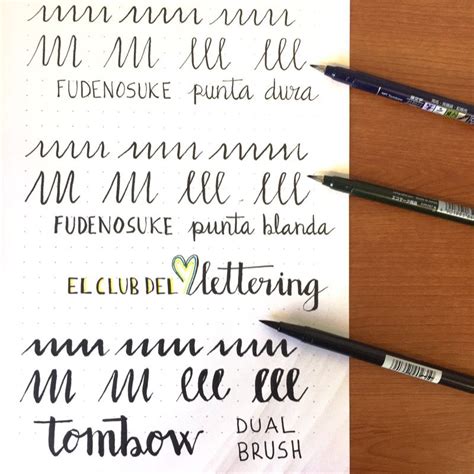 FUDENOSUKE punta dura
Tombow
FUDENOSUKE punta blanda
EL CLUB DEL lettering
tombow DUAL
BRUSH